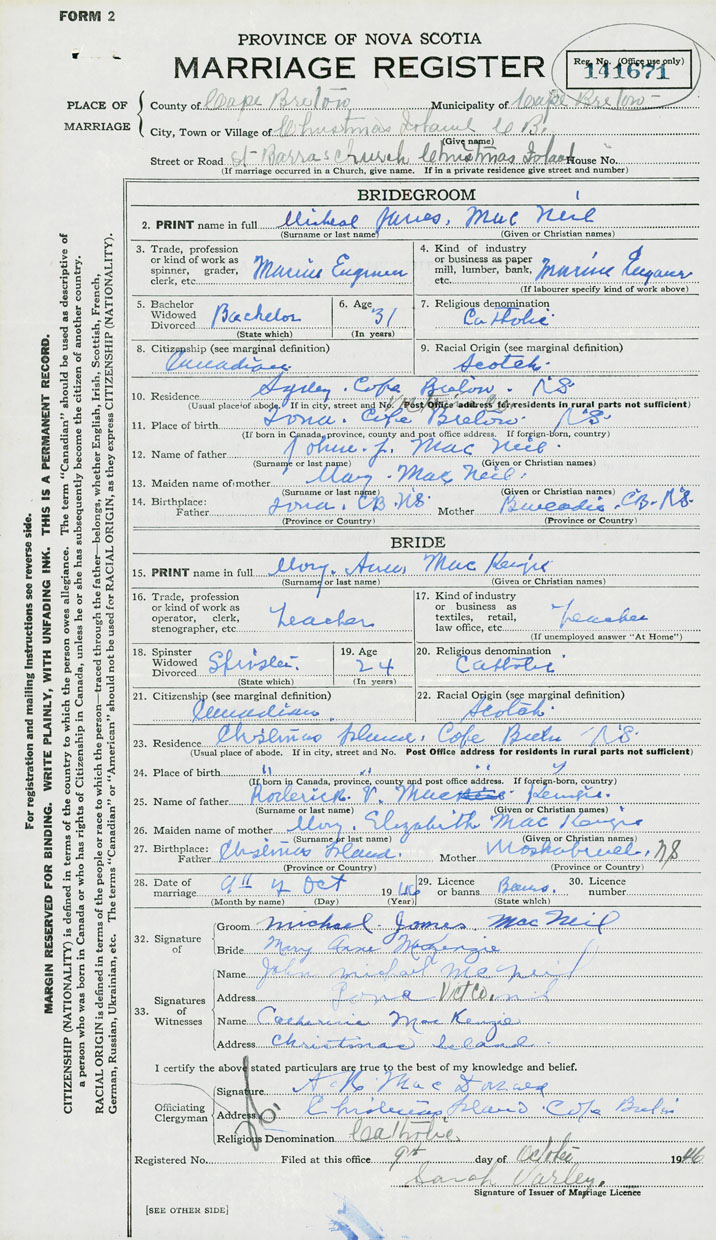 FORM 2
PROVINCE OF NOVA SCOTIA
MARRIAGE REGISTER
Reg. No. (Office use only)
141671
PLACE OF MARRIAGE
County of Cape Breton Municipality of Cape Breton
City, Town or Village of Christmas Island C B.
(Give name)
Street or Road St Barra's Church Christmas Island House No.
(If marriage occurred in a Church, give name. If in a private residence give street and number)
BRIDEGROOM
2. PRINT name in full Micheal James. Mac Neil
(Surname or last name) (Given or Christian names)
3. Trade, profession or kind of work as spinner, grader, clerk, etc. Marine Engineer
4. Kind of industry or business as paper mill, lumber, bank, etc. Marine
(If labourer specify kind of work above)
5. Bachelor Widowed Divorced Bachelor
(State which)
6. Age 31
(In years)
7. Religious denomination
Catholic
8. Citizenship (see marginal definition)
Canadian
9. Racial Origin (see marginal definition)
Scotch.
10. Residence Sydney. Cape Breton. N.S
(Usual place of abode. If in city, street and No. Post Office address for residents in rural parts not sufficient)
11. Place of birth Iona. Cape Breton. N.S
(If born in Canada, province, county and post office address. If foreign-born, country)
12. Name of father John. J. Mac Neil.
(Surname or last name) (Given or Christian names)
13. Maiden name of mother Mary. Mac Neil.
(Surname or last name) (Given or Christian names)
14. Birthplace: Father Iona. CB. NS. Mother CB. N.S.
(Province or Country) (Province or Country)
BRIDE
15. PRINT name in full Mary. Anne Mac Kenzie
(Surname or last name) (Given or Christian names)
16. Trade, profession or kind of work as operator, clerk, stenographer, etc. Teacher
17. Kind of industry or business as textiles, retail, law office, etc. Teacher
(If unemployed answer "At Home")
18. Spinster Widowed Divorced Spinster.
(State which)
19. Age
24
(In years)
20. Religious denomination
Catholic
21. Citizenship (see marginal definition)
Canadian.
22. Racial Origin (see marginal definition)
Scotch.
23. Residence Christmas Island. Cape Breton N.S
(Usual place of abode. If in city, street and No. Post Office address for residents in rural parts not sufficient)
24. Place of birth " " " "
(If born in Canada, province, county and post office address. If foreign-born, country)
25. Name of father Roderick. V. Mac Kenzie.
(Surname or last name) (Given or Christian names)
26. Maiden name of mother Mary. Elizabeth Mac Kenzie
(Surname or last name) (Given or Christian names)
27. Birthplace: Father Christmas Island. Mother NS
(Province or Country) (Province or Country)
28. Date of marriage 9th of Oct 1946
(Month by name) (Day) (Year)
29. Licence or banns Banns.
(State which)
30. Licence number
32. Signature of
Groom Michael James MacNeil
Bride Mary Anne McKenzie
33. Signatures of Witnesses
Name John Michael McNeil
Address Iona Vict co. N.S
Name Catherine MacKenzie
Address Christmas Island
I certify the above stated particulars are true to the best of my knowledge and belief.
Officiating Clergyman
Signature Mac Donald
Address Christmas Island. Cape Breton
Religious Denomination Catholic.
Registered No. Filed at this office 9th day of October 1946
Sarah Varley.
Signature of Issuer of Marriage Licence
[SEE OTHER SIDE]
For registration and mailing instructions see reverse side.
MARGIN RESERVED FOR BINDING. WRITE PLAINLY, WITH UNFADING INK. THIS IS A PERMANENT RECORD.
CITIZENSHIP (NATIONALITY) is defined in terms of the country to which the person owes allegiance. The term "Canadian" should be used as descriptive of
a person who was born in Canada or who has rights of Citizenship in Canada, unless he or she has subsequently become the citizen of another country.
RACIAL ORIGIN is defined in terms of the people or race to which the person—traced through the father—belongs, whether English, Irish, Scottish, French,
German, Russian, Ukrainian, etc. The terms "Canadian" or "American" should not be used for RACIAL ORIGIN, as they express CITIZENSHIP (NATIONALITY).